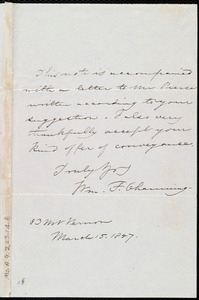 This note is accompanied
with a letter to Mr Pierce
written according to your
suggestion. I also very
thankfully accept your
kind offer of conveyance.
Truly Yrs
Wm. F. Channing.
83 Mt Vernon
March 15. 1847.